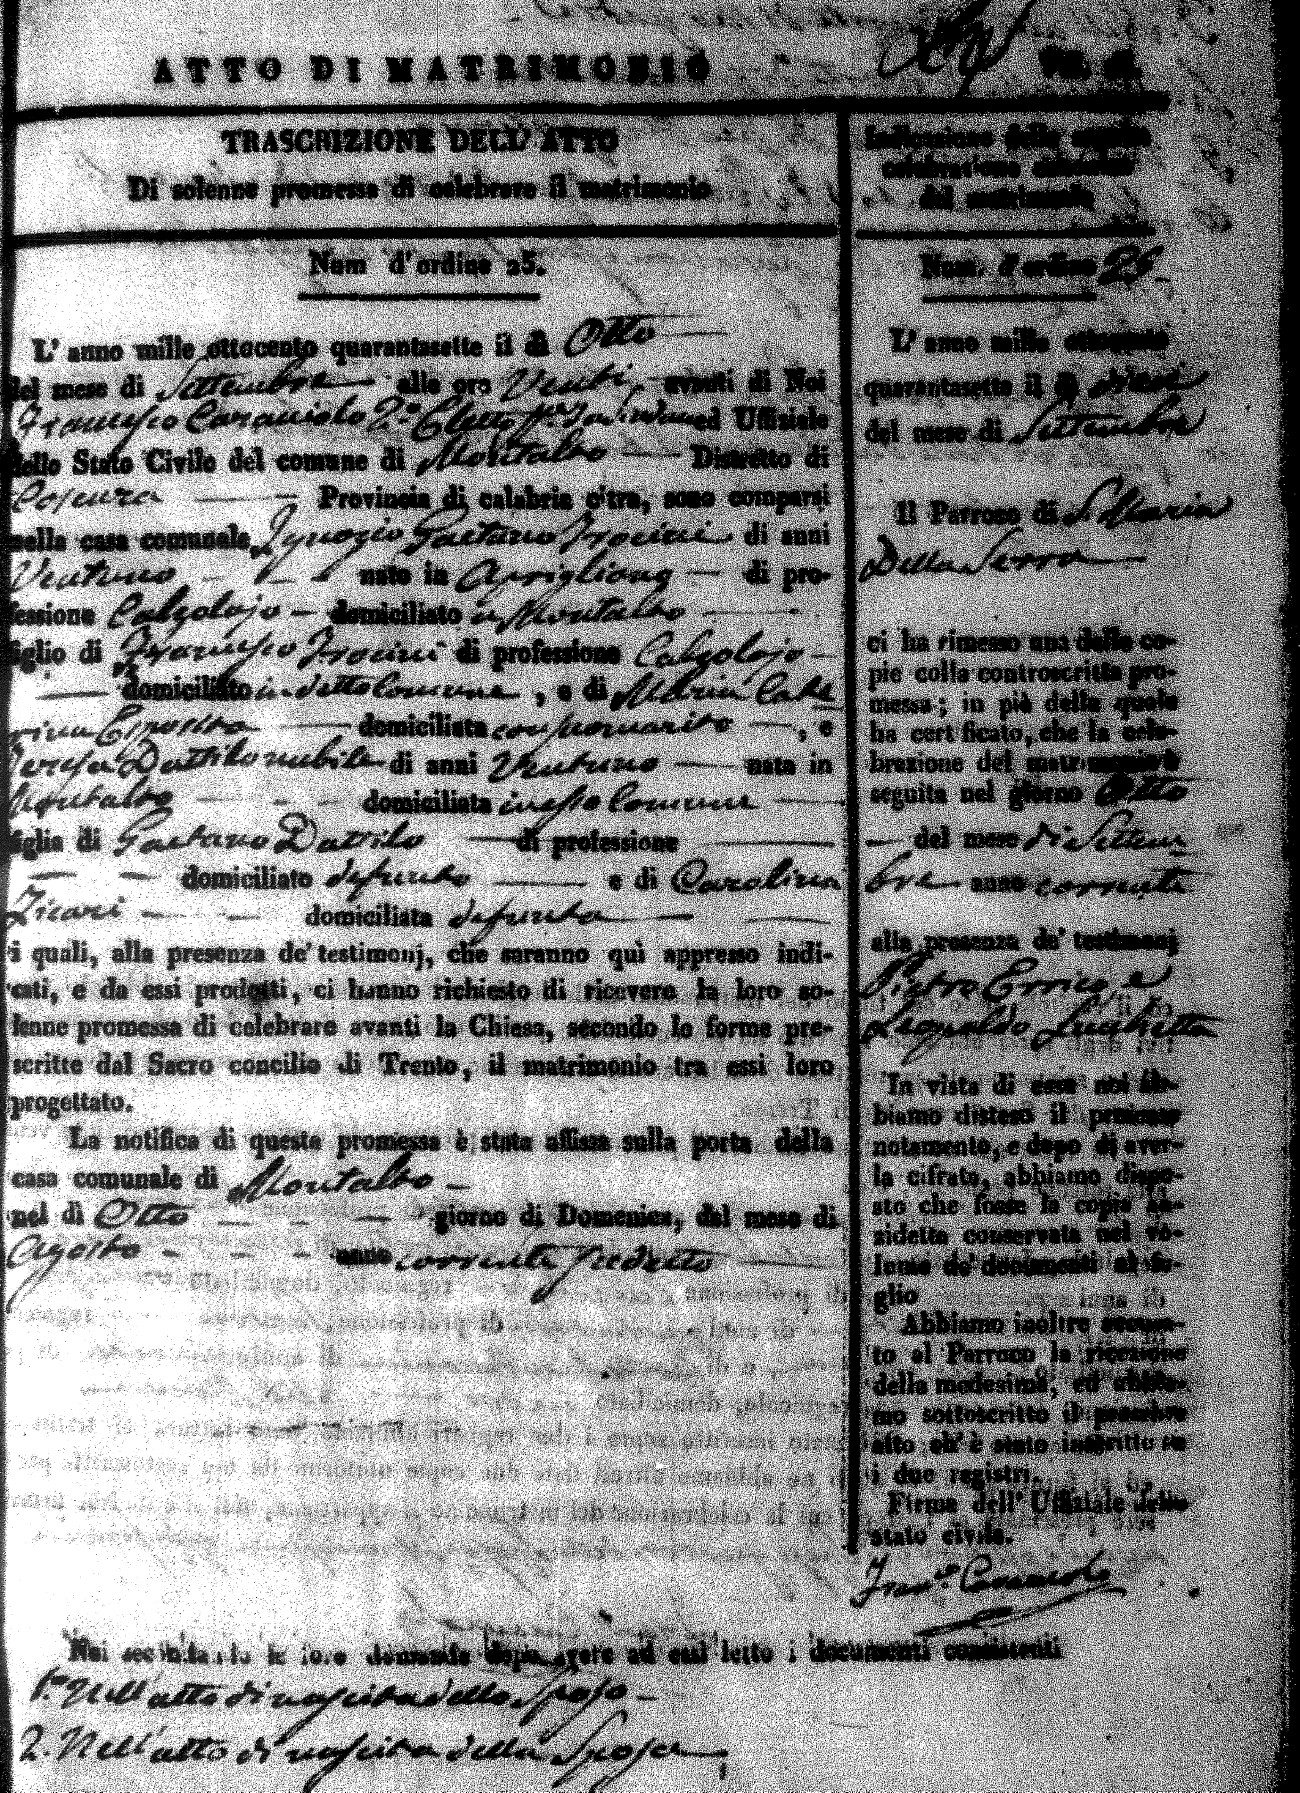 ATTO DI MATRIMONIO
TRASCRIZIONE DELL' ATTO
Di solenne promessa di celebrare il matrimonio
Num d'ordine 25.
L' anno mille ottocento quarantasette il dì Otto
del mese di Settembre alle ore Venti avanti di Noi
Francesco Caracciolo 2.° Eletto ed Uffiziale
dello Stato Civile del comune di Montalto Distretto di
Cosenza Provincia di calabria citra, sono comparsi
nella casa comunale Ignazio Gaetano Trocini di anni
Ventuno nato in Aprigliano di pro-
fessione Calzolajo domiciliato in Montalto
figlio di Francesco Trocini di professione Calzolajo
domiciliato in detto Comune, e di Maria Cate
rina Esposito domiciliata con suo marito, e
Teresa Dattilo nubile di anni Ventuno nata in
Montalto domiciliata in esso Comune
figlia di Gaetano Dattilo di professione
domiciliato defunto e di Carolina
Zicari domiciliata defunta
i quali, alla presenza de' testimonj, che saranno quì appresso indi-
cati, e da essi prodotti, ci hanno richiesto di ricevere la loro so-
lenne promessa di celebrare avanti la Chiesa, secondo le forme pre-
scritte dal Sacro concilio di Trento, il matrimonio tra essi loro
progettato.
La notifica di questa promessa è stata affissa sulla porta della
casa comunale di Montalto
nel dì Otto giorno di Domenica, del mese di
Agosto anno corrente
Indicazione della seguita
celebrazione
del matrimonio
Num. d'ordine 25
L' anno mille ottocento
quarantasette il dì dieci
del mese di Settembre
Il Parroco di S. Maria
Della Serra
ci ha rimesso una delle co-
pie colla controscritta pro-
messa; in piè della quale
ha certificato, che la cele-
brazione del matrimonio è
seguita nel giorno Otto
del mese di Settem
bre anno corrente
alla presenza de' testimonj
Pietro Errico e
Leopoldo Luchetta
In vista di essa noi ab-
biamo disteso il presente
notamento, e dopo di aver-
la cifrata, abbiamo dispo-
sto che fosse la copia an-
zidetta conservata nel vo-
lume de' documenti al fo-
glio
Abbiamo inoltre accusa-
to al Parroco la ricezione
della medesima, ed abbia-
mo sottoscritto il presente
atto ch' è stato inscritto su
i due registri.
Firma dell' Uffiziale dello
stato civile.
Fran.co Caracciolo
Noi secondando le loro domande dopo avere ad essi letto i documenti consistenti
1.° Nell'atto di nascita dello Sposo
2. Nell'atto di nascita della Sposa